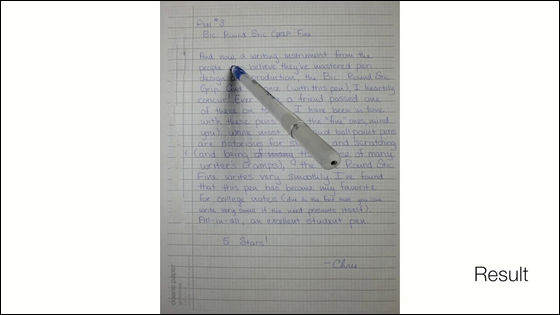 Pen #3
Bic Round Stic Grip Fine
And now, a writing instrument from the
people believe they've mastered pen
design production, the Bic Round Stic
Grip (with this pen), I heartily
concur. Ever a friend passed one
of these on I have been in love
with these pens the "fine" ones, mind
you). While most ballpoint pens
are notorious for and scratching
(and being the of many
writers cramps), the Round Stic
Fine writes very smoothly. I've found
that this pen has become my favorite
for college notes (due to the fact that you can
write very small if the need presents itself).
All-in-all, an excellent student pen.
5 Stars!
- Chris
doane paper
Result